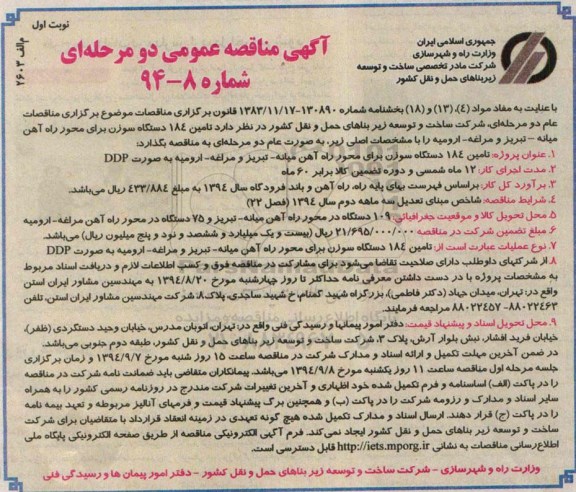 نوبت اول
م الف ۲۶۰۳
جمهوری اسلامی ایران
وزارت راه و شهرسازی
شرکت مادر تخصصی ساخت و توسعه
زیربناهای حمل و نقل کشور
آگهی مناقصه عمومی دو مرحله‌ای
شماره ۸-۹۴
با عنایت به مفاد مواد (۴)، (۱۳) و (۱۸) بخشنامه شماره ۱۳۰۸۹۰-۱۳۸۳/۱۱/۱۷ قانون برگزاری مناقصات موضوع برگزاری مناقصات
عام دو مرحله‌ای، شرکت ساخت و توسعه زیر بناهای حمل و نقل کشور در نظر دارد تامین ۱۸۴ دستگاه سوزن برای محور راه آهن
میانه - تبریز و مراغه- ارومیه را با مشخصات اصلی زیر، به صورت عام دو مرحله‌ای به مناقصه بگذارد:
۱. عنوان پروژه: تامین ۱۸۴ دستگاه سوزن برای محور راه آهن میانه- تبریز و مراغه- ارومیه به صورت DDP
۲. مدت اجرای کار: ۱۲ ماه شمسی و دوره تضمین کالا برابر ۶۰ ماه
۳. برآورد کل کار: براساس فهرست بهای پایه راه، راه آهن و باند فرودگاه سال ۱۳۹۴ به مبلغ ۴۳۳/۸۸۴ ریال می‌باشد.
۴. شرایط مناقصه: شاخص مبنای تعدیل سه ماهه دوم سال ۱۳۹۴ (فصل ۲۲)
۵. محل تحویل کالا و موقعیت جغرافیایی: ۱۰۹ دستگاه در محور راه آهن میانه- تبریز و ۷۵ دستگاه در محور راه آهن مراغه- ارومیه
۶. مبلغ تضمین شرکت در مناقصه ۲۱/۶۹۵/۰۰۰/۰۰۰ ریال (بیست و یک میلیارد و ششصد و نود و پنج میلیون ریال) می‌باشد.
۷. نوع عملیات عبارت است از: تامین ۱۸۴ دستگاه سوزن برای محور راه آهن میانه- تبریز و مراغه- ارومیه به صورت DDP
۸. از شرکتهای داوطلب دارای صلاحیت تقاضا می‌شود برای مشارکت در مناقصه فوق و کسب اطلاعات لازم و دریافت اسناد مربوط
به مشخصات پروژه با در دست داشتن معرفی نامه حداکثر تا روز چهارشنبه مورخ ۱۳۹۴/۸/۲۰ به مهندسین مشاور ایران استن
واقع در: تهران، میدان جهاد (دکتر فاطمی)، بزرگراه شهید گمنام، خ شهید ساجدی، پلاک ۸، شرکت مهندسین مشاور ایران استن، تلفن
۸۸۰۲۲۴۶۳- ۸۸۰۲۲۴۵۷ مراجعه فرمایند.
۹. محل تحویل اسناد و پیشنهاد قیمت: دفتر امور پیمانها و رسیدگی فنی واقع در: تهران، اتوبان مدرس، خیابان وحید دستگردی (ظفر)،
خیابان فرید افشار، نبش بلوار آرش، پلاک ۳، شرکت ساخت و توسعه زیر بناهای حمل و نقل کشور، طبقه دوم جنوبی می‌باشد.
در ضمن آخرین مهلت تکمیل و ارائه اسناد و مدارک شرکت در مناقصه ساعت ۱۵ روز شنبه مورخ ۱۳۹۴/۹/۷ و زمان برگزاری
جلسه مرحله اول مناقصه ساعت ۱۱ روز یکشنبه مورخ ۱۳۹۴/۹/۸ می‌باشد. پیمانکاران متقاضی باید ضمانت نامه شرکت در مناقصه
را در پاکت (الف) اساسنامه و فرم تکمیل شده خود اظهاری و آخرین تغییرات شرکت مندرج در روزنامه رسمی کشور را به همراه
سایر اسناد و مدارک و رزومه شرکت را در پاکت (ب) و همچنین برگ پیشنهاد قیمت و فرمهای آنالیز مربوطه و تعهد بیمه نامه
را در پاکت (ج) قرار دهند. ارسال اسناد و مدارک تکمیل شده هیچ گونه تعهدی در زمینه انعقاد قرارداد با متقاضیان برای شرکت
ساخت و توسعه زیر بنای حمل و نقل کشور ایجاد نمی‌کند. فرم آگهی الکترونیکی مناقصه از طریق صفحه الکترونیکی پایگاه ملی
اطلاع‌رسانی مناقصات به نشانی http://iets.mporg.ir قابل دسترسی است.
وزارت راه و شهرسازی - شرکت ساخت و توسعه زیر بناهای حمل و نقل کشور - دفتر امور پیمان ها و رسیدگی فنی